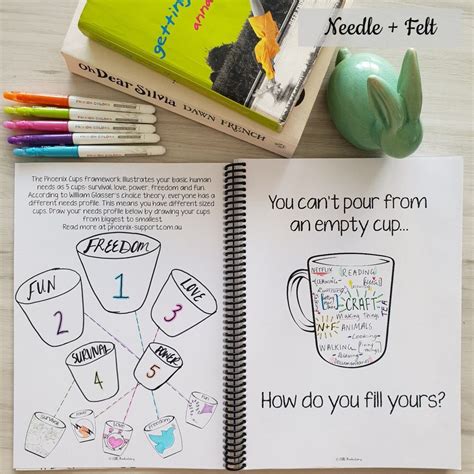 Needle + Felt
getting
anna
Oh Dear Silvia DAWN FRENCH
The Phoenix Cups framework illustrates your basic human
needs as 5 cups: survival, love, power, freedom and fun.
According to William Glasser's choice theory, everyone has a
different needs profile. This means you have different sized
cups. Draw your needs profile below by drawing your cups
from biggest to smallest.
Read more at phoenix-support.com.au
FREEDOM
1
FUN
2
LOVE
3
SURVIVAL
4
POWER
5
survival
freedom
fun
You can't pour from
an empty cup...
NETFLIX
READING
CRAFT
Making Things
N+F ANIMALS
WALKING
How do you fill yours?